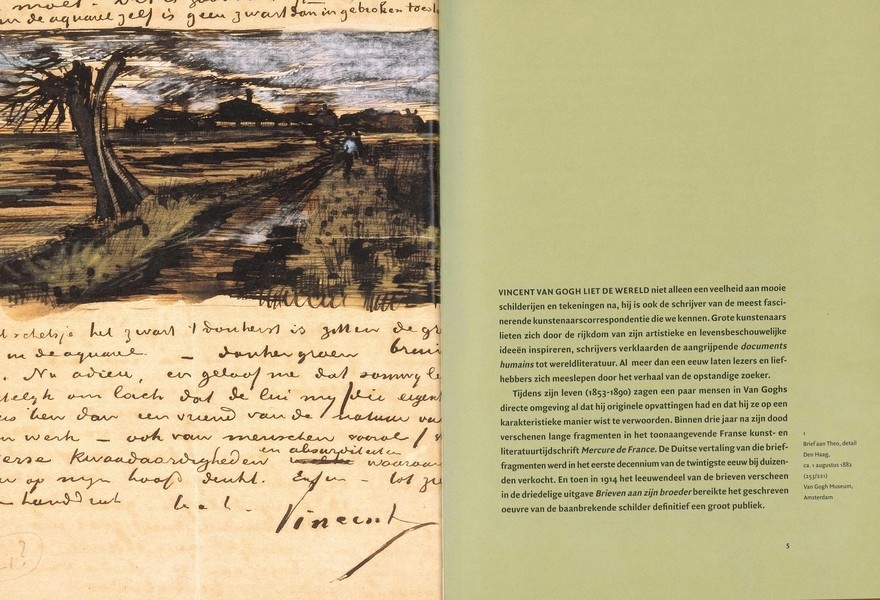 in de aquarel zelf is geen zwart dan in gebroken toest
het zwart 't donkerst is zitten de gr
in de aquarel. — donkergroen bruin
. Nu adieu, en geloof me dat
om lach dat de lui my die eigen
ben dan een vriend van de natuur van
en werk — ook van menschen vooral
en absurditeiten
kwaadaardigheden waarvan
op mijn hoofd denkt. Enfin — tot
handdruk t. à t.
Vincent
VINCENT VAN GOGH LIET DE WERELD niet alleen een veelheid aan mooie
schilderijen en tekeningen na, hij is ook de schrijver van de meest fasci-
nerende kunstenaarscorrespondentie die we kennen. Grote kunstenaars
lieten zich door de rijkdom van zijn artistieke en levensbeschouwelijke
ideeën inspireren, schrijvers verklaarden de aangrijpende documents
humains tot wereldliteratuur. Al meer dan een eeuw laten lezers en lief-
hebbers zich meeslepen door het verhaal van de opstandige zoeker.
Tijdens zijn leven (1853-1890) zagen een paar mensen in Van Goghs
directe omgeving al dat hij originele opvattingen had en dat hij ze op een
karakteristieke manier wist te verwoorden. Binnen drie jaar na zijn dood
verschenen lange fragmenten in het toonaangevende Franse kunst- en
literatuurtijdschrift Mercure de France. De Duitse vertaling van die brief-
fragmenten werd in het eerste decennium van de twintigste eeuw bij duizen-
den verkocht. En toen in 1914 het leeuwendeel van de brieven verscheen
in de driedelige uitgave Brieven aan zijn broeder bereikte het geschreven
oeuvre van de baanbrekende schilder definitief een groot publiek.
1
Brief aan Theo, detail
Den Haag,
ca. 1 augustus 1882
(253/221)
Van Gogh Museum,
Amsterdam
5